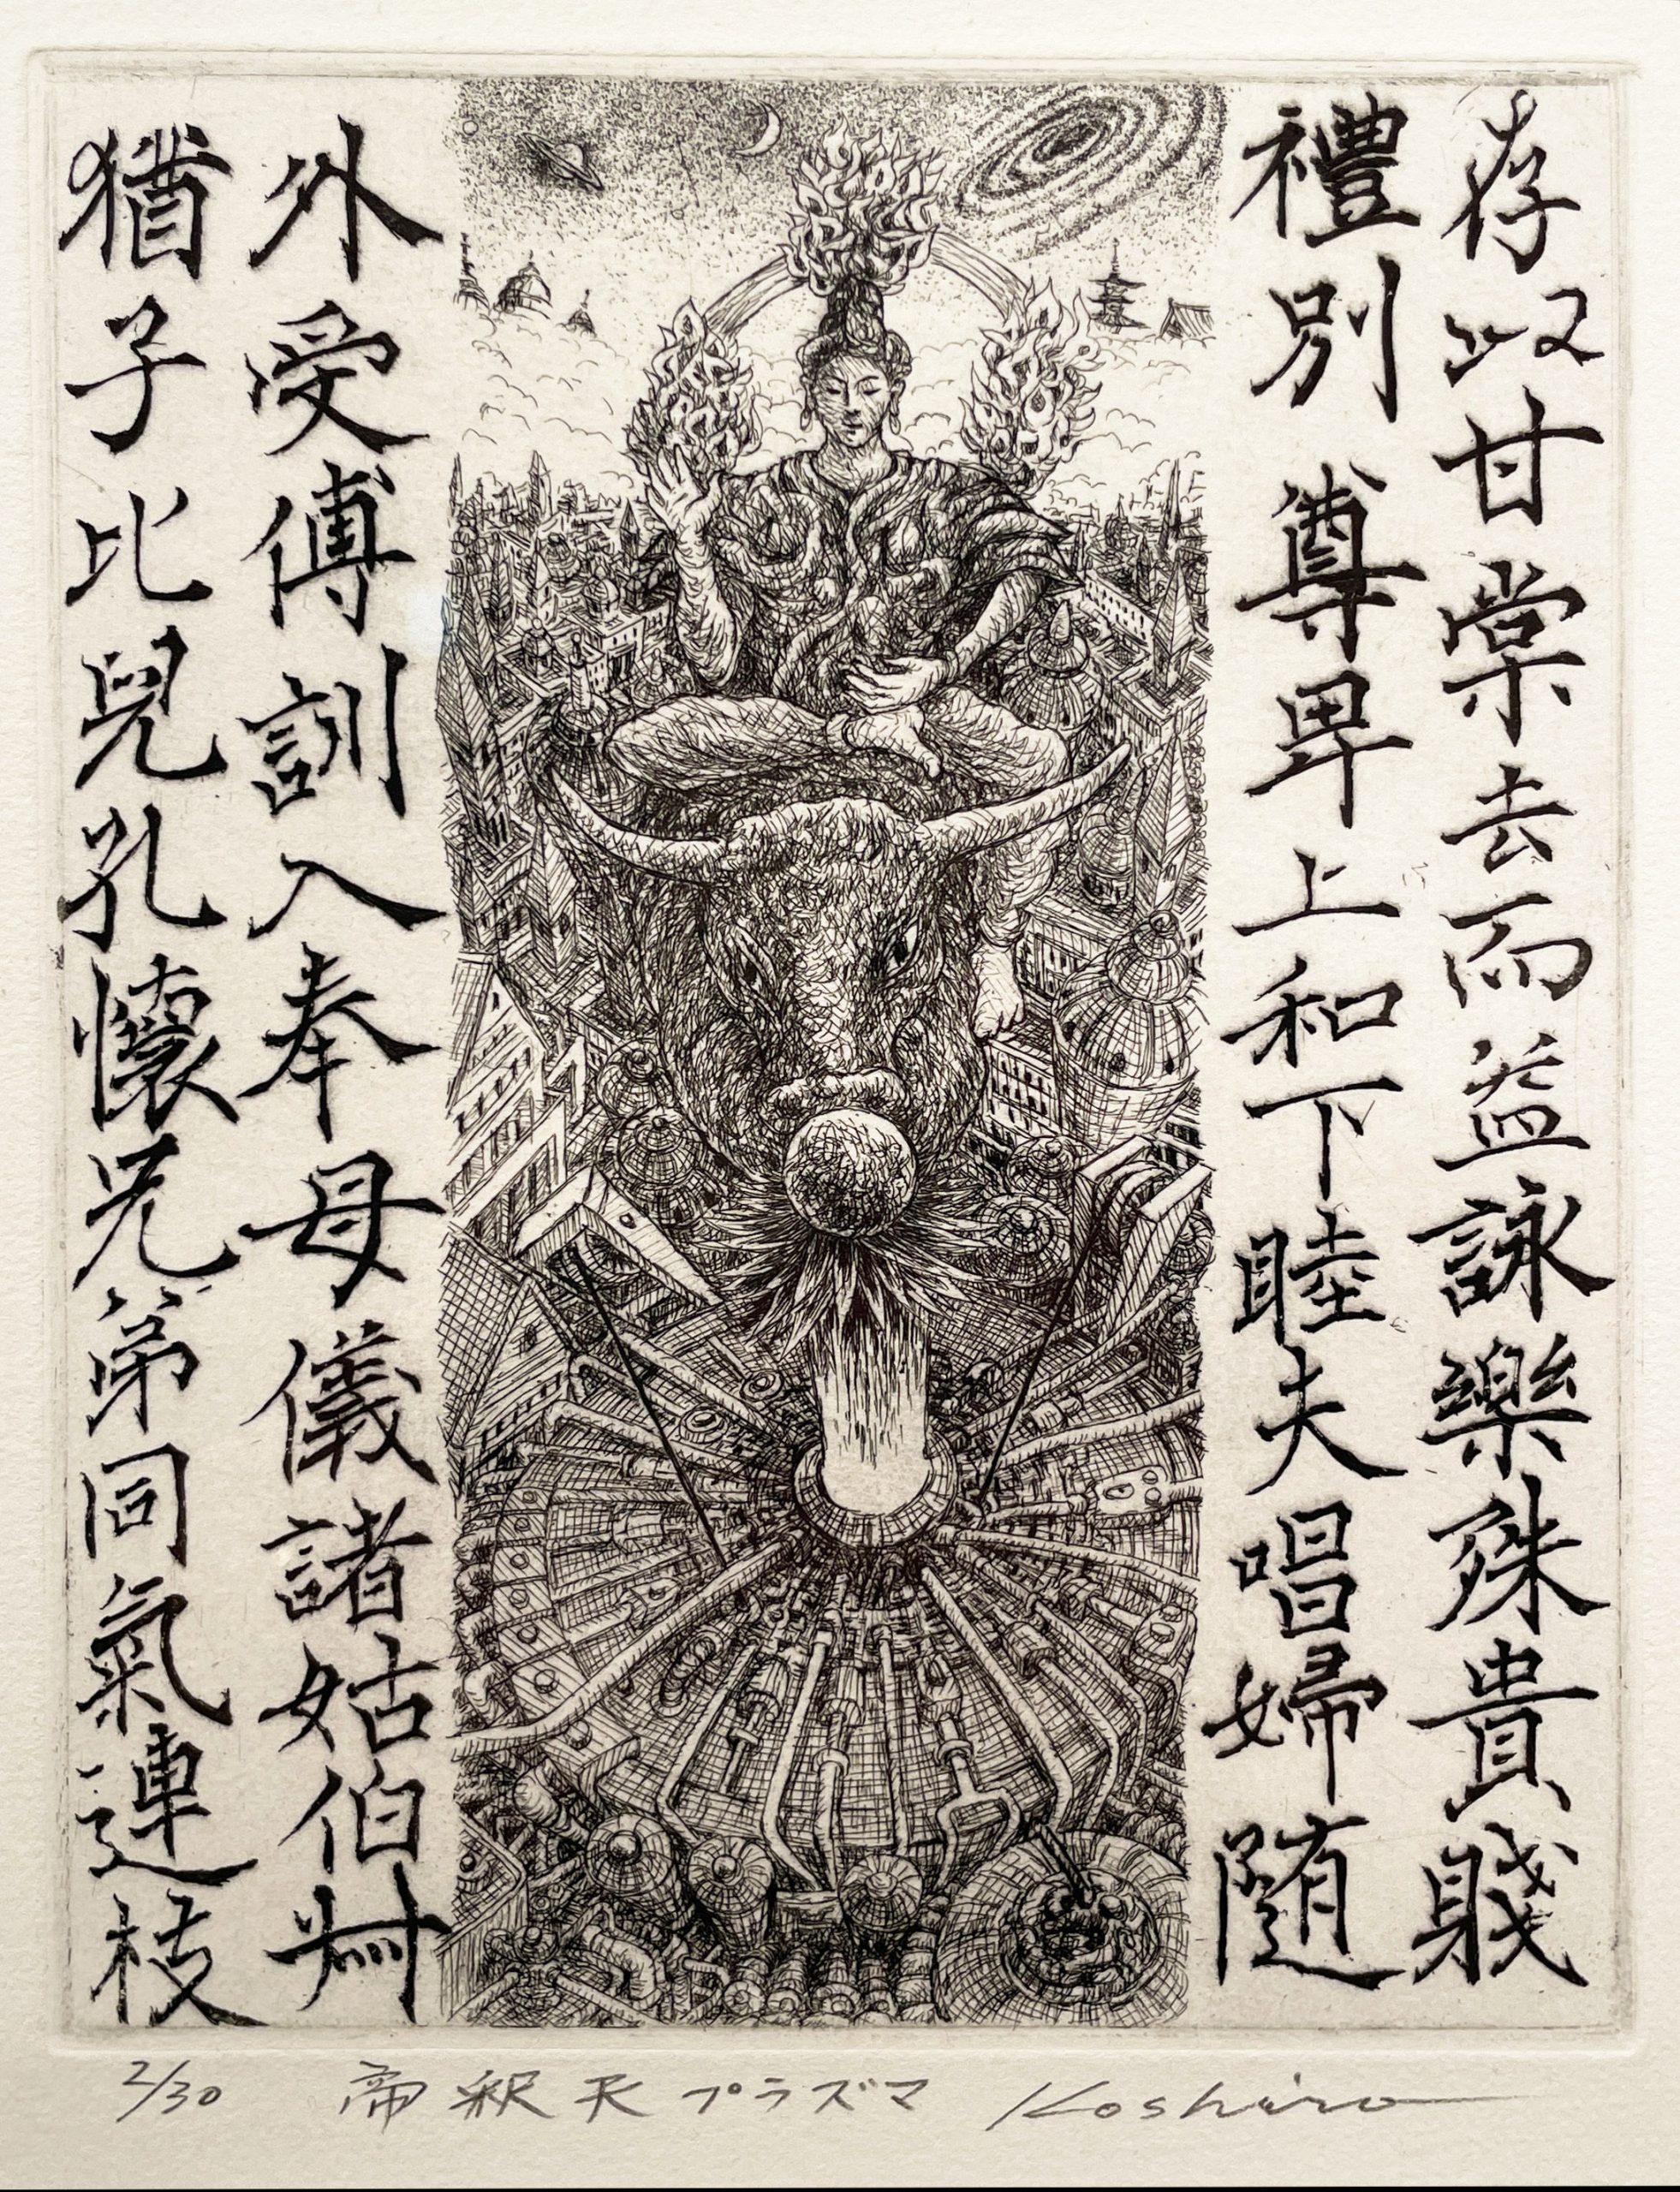 存以甘棠去而益詠樂殊貴賤
禮別尊卑上和下睦夫唱婦随
外受傅訓入奉母儀諸姑伯叔
猶子比兒孔懷兄弟同氣連枝
2/30 帝釈天プラズマ Koshiro